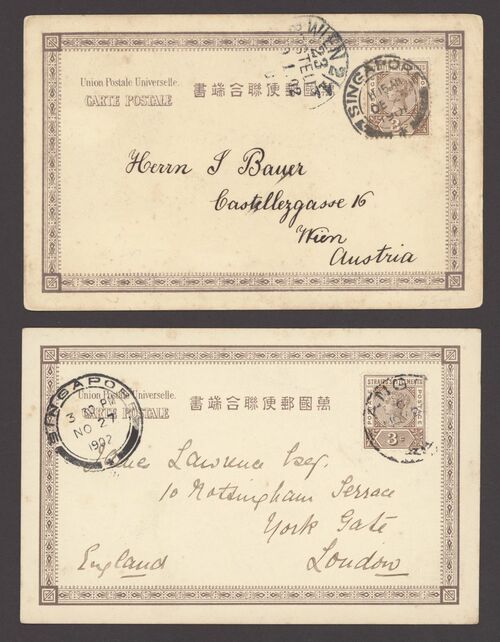 WIEN 2/2
SINGAPORE
Union Postale Universelle.
CARTE POSTALE
書端合聯便郵國萬
Herrn J Bauer
Castellezgasse 16
Wien
Austria
SINGAPORE
3 PM
NO 27
1902
Union Postale Universelle.
CARTE POSTALE
萬國郵便聯合端書
STRAITS SETTLEMENTS
POSTAGE
3 C
Lawrence Esq.
10 Nottingham Terrace
York Gate
London
England